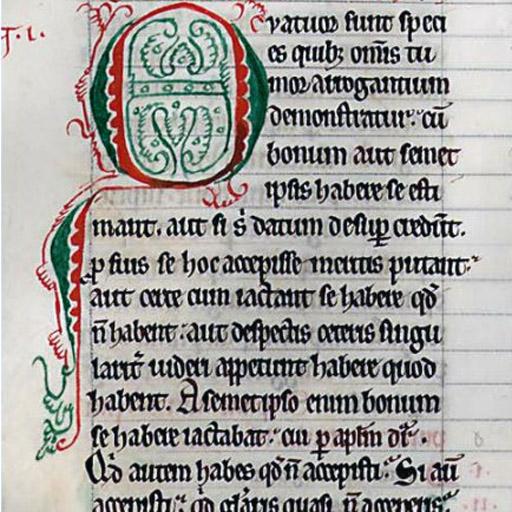 T. I.
Quatuor sunt speci
es quib; om̄s tu
mor arrogantium
demonstratur. cū
bonum aut semet
ipsis habere se esti
mant. aut si s̄ datum desup̱ credūt.
ꝓ suis se hoc accepisse meritis putant.
aut certe cum iactant se habere qd̄
n̄ habent: aut despectis ceteris singu
larit̄ uideri appetunt habere quod
habent. A semetipso enim bonum
se habere iactabat. cui p̱ apl̄m dr̄.
Qd̄ autem habes qd̄ n̄ accepisti. Si aū
accepisti. qd̄ gl̄aris quasi n̄ acceperis.